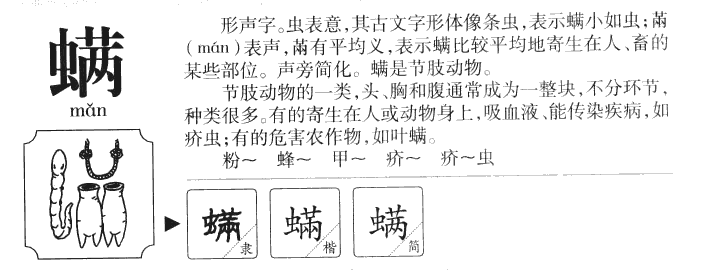 螨
mǎn
形声字。虫表意,其古文字形体像条虫,表示螨小如虫;㒼
(mán)表声,㒼有平均义,表示螨比较平均地寄生在人、畜的
某些部位。声旁简化。螨是节肢动物。
节肢动物的一类,头、胸和腹通常成为一整块,不分环节,
种类很多。有的寄生在人或动物身上,吸血液、能传染疾病,如
疥虫;有的危害农作物,如叶螨。
粉～ 蜂～ 甲～ 疥～ 疥～虫
蟎 隶
蟎 楷
螨 简